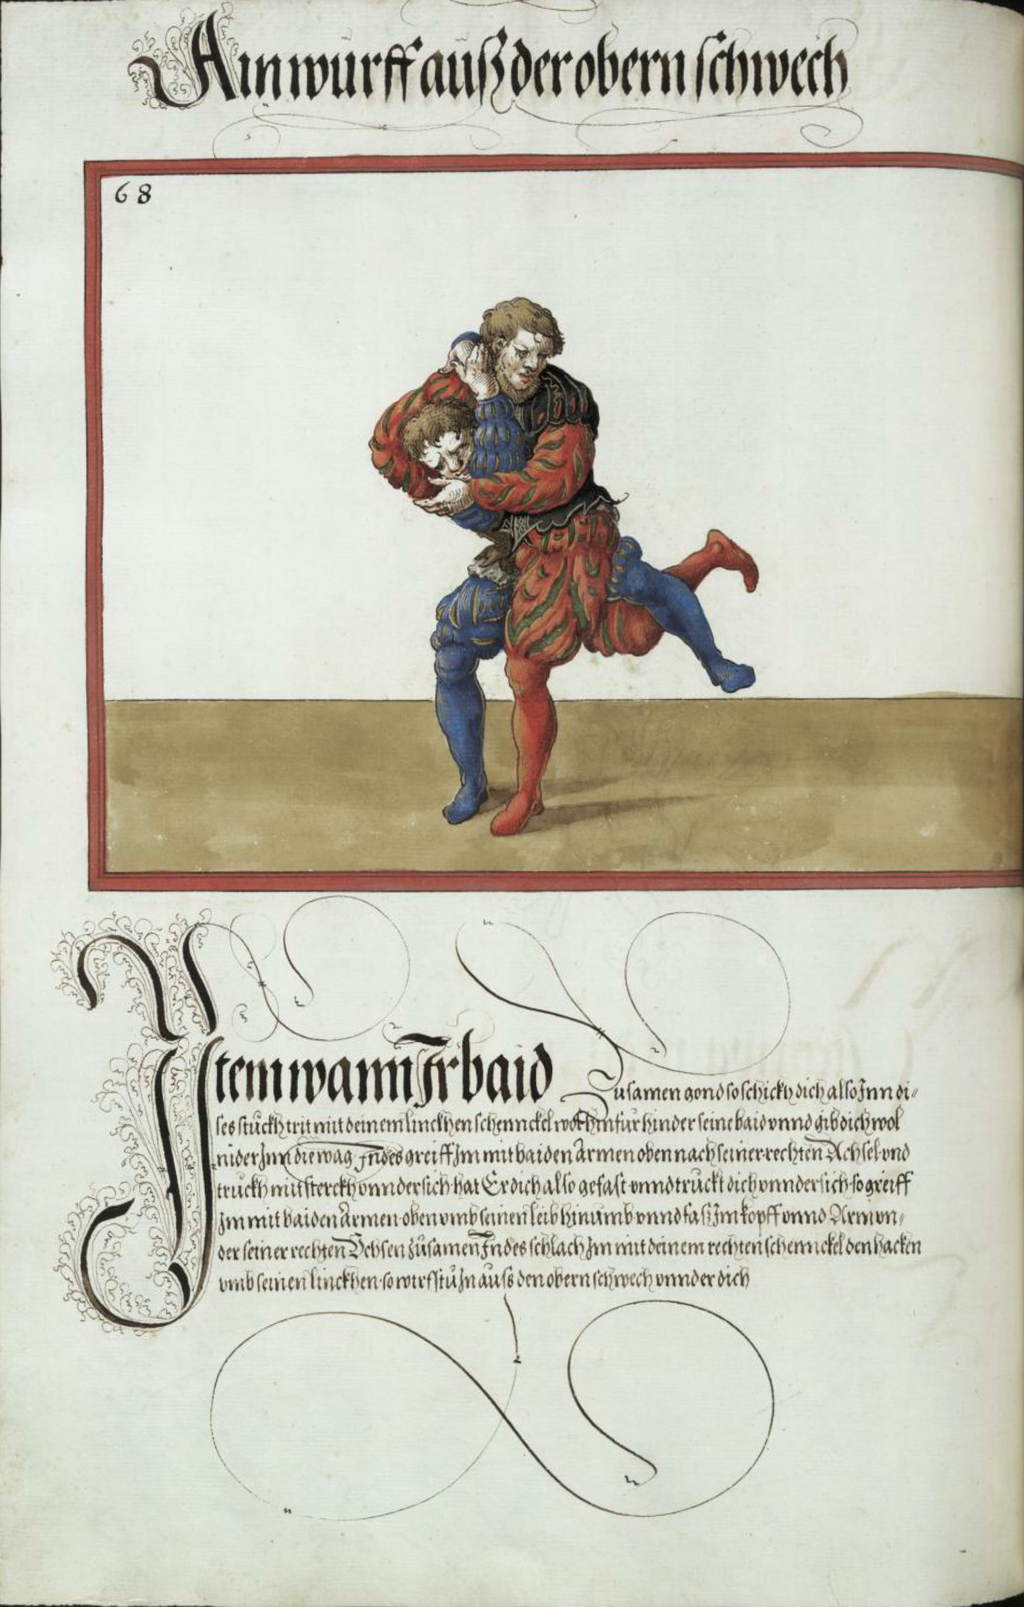 Ain wurff auß der obern schwech
68
Item wann Ir baid
zusamen gond so schickh dich also Inn di-
ses stuckh trit mit deinem linckhen schennckel wol hinfür hinder seine baid vnnd gib dich wol
nider Inn die wag Indes greiff Im mit baiden Armen oben nach seiner rechten Achsel vnd
truckh mit sterckh vnndersich hat Er dich also gefast vnnd truckt dich vnndersich so greiff
Im mit baiden Armen oben vmb seinen leib hinumb vnnd faß Im kopff vnnd Arm vn,
der seiner rechten Vchsen zusamen Indes schlach Im mit deinem rechten schennckel den hacken
vmb seinen linckhen so wirfstu In auß den obern schwech vnnder dich